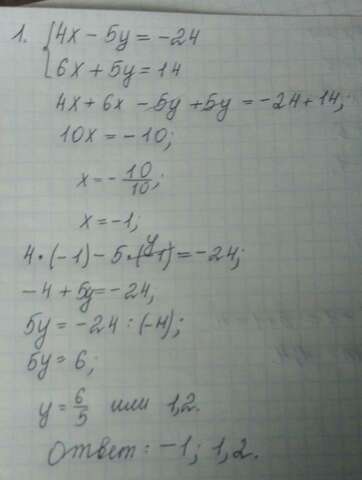 1. { 4x - 5y = -24
6x + 5y = 14
4x + 6x - 5y + 5y = -24 + 14;
10x = -10;
x = - 10/10;
x = -1;
4 · (-1) - 5 · y = -24;
-4 + 5y = -24,
5y = -24 : (-4);
5y = 6;
y = 6/5 или 1,2.
Ответ: -1; 1,2.